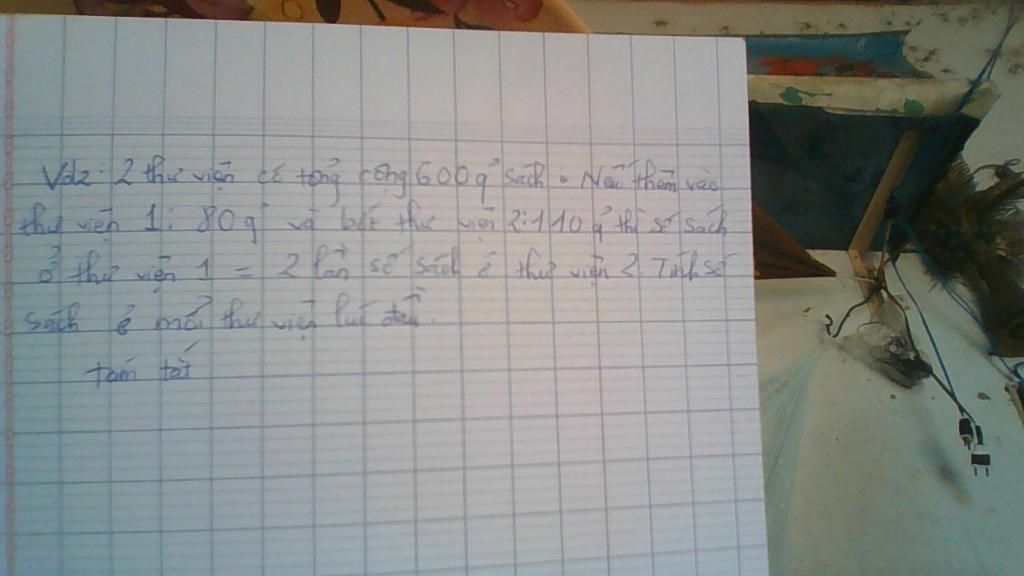 Vd2: 2 thư viện có tổng cộng 600q' sách. Nếu thêm vào
thư viện 1: 80q' và bớt thư viện 2: 110q' thì số sách
ở thư viện 1 = 2 lần số sách ở thư viện 2. Tính số
sách ở mỗi thư viện lúc đầu.
tóm tắt